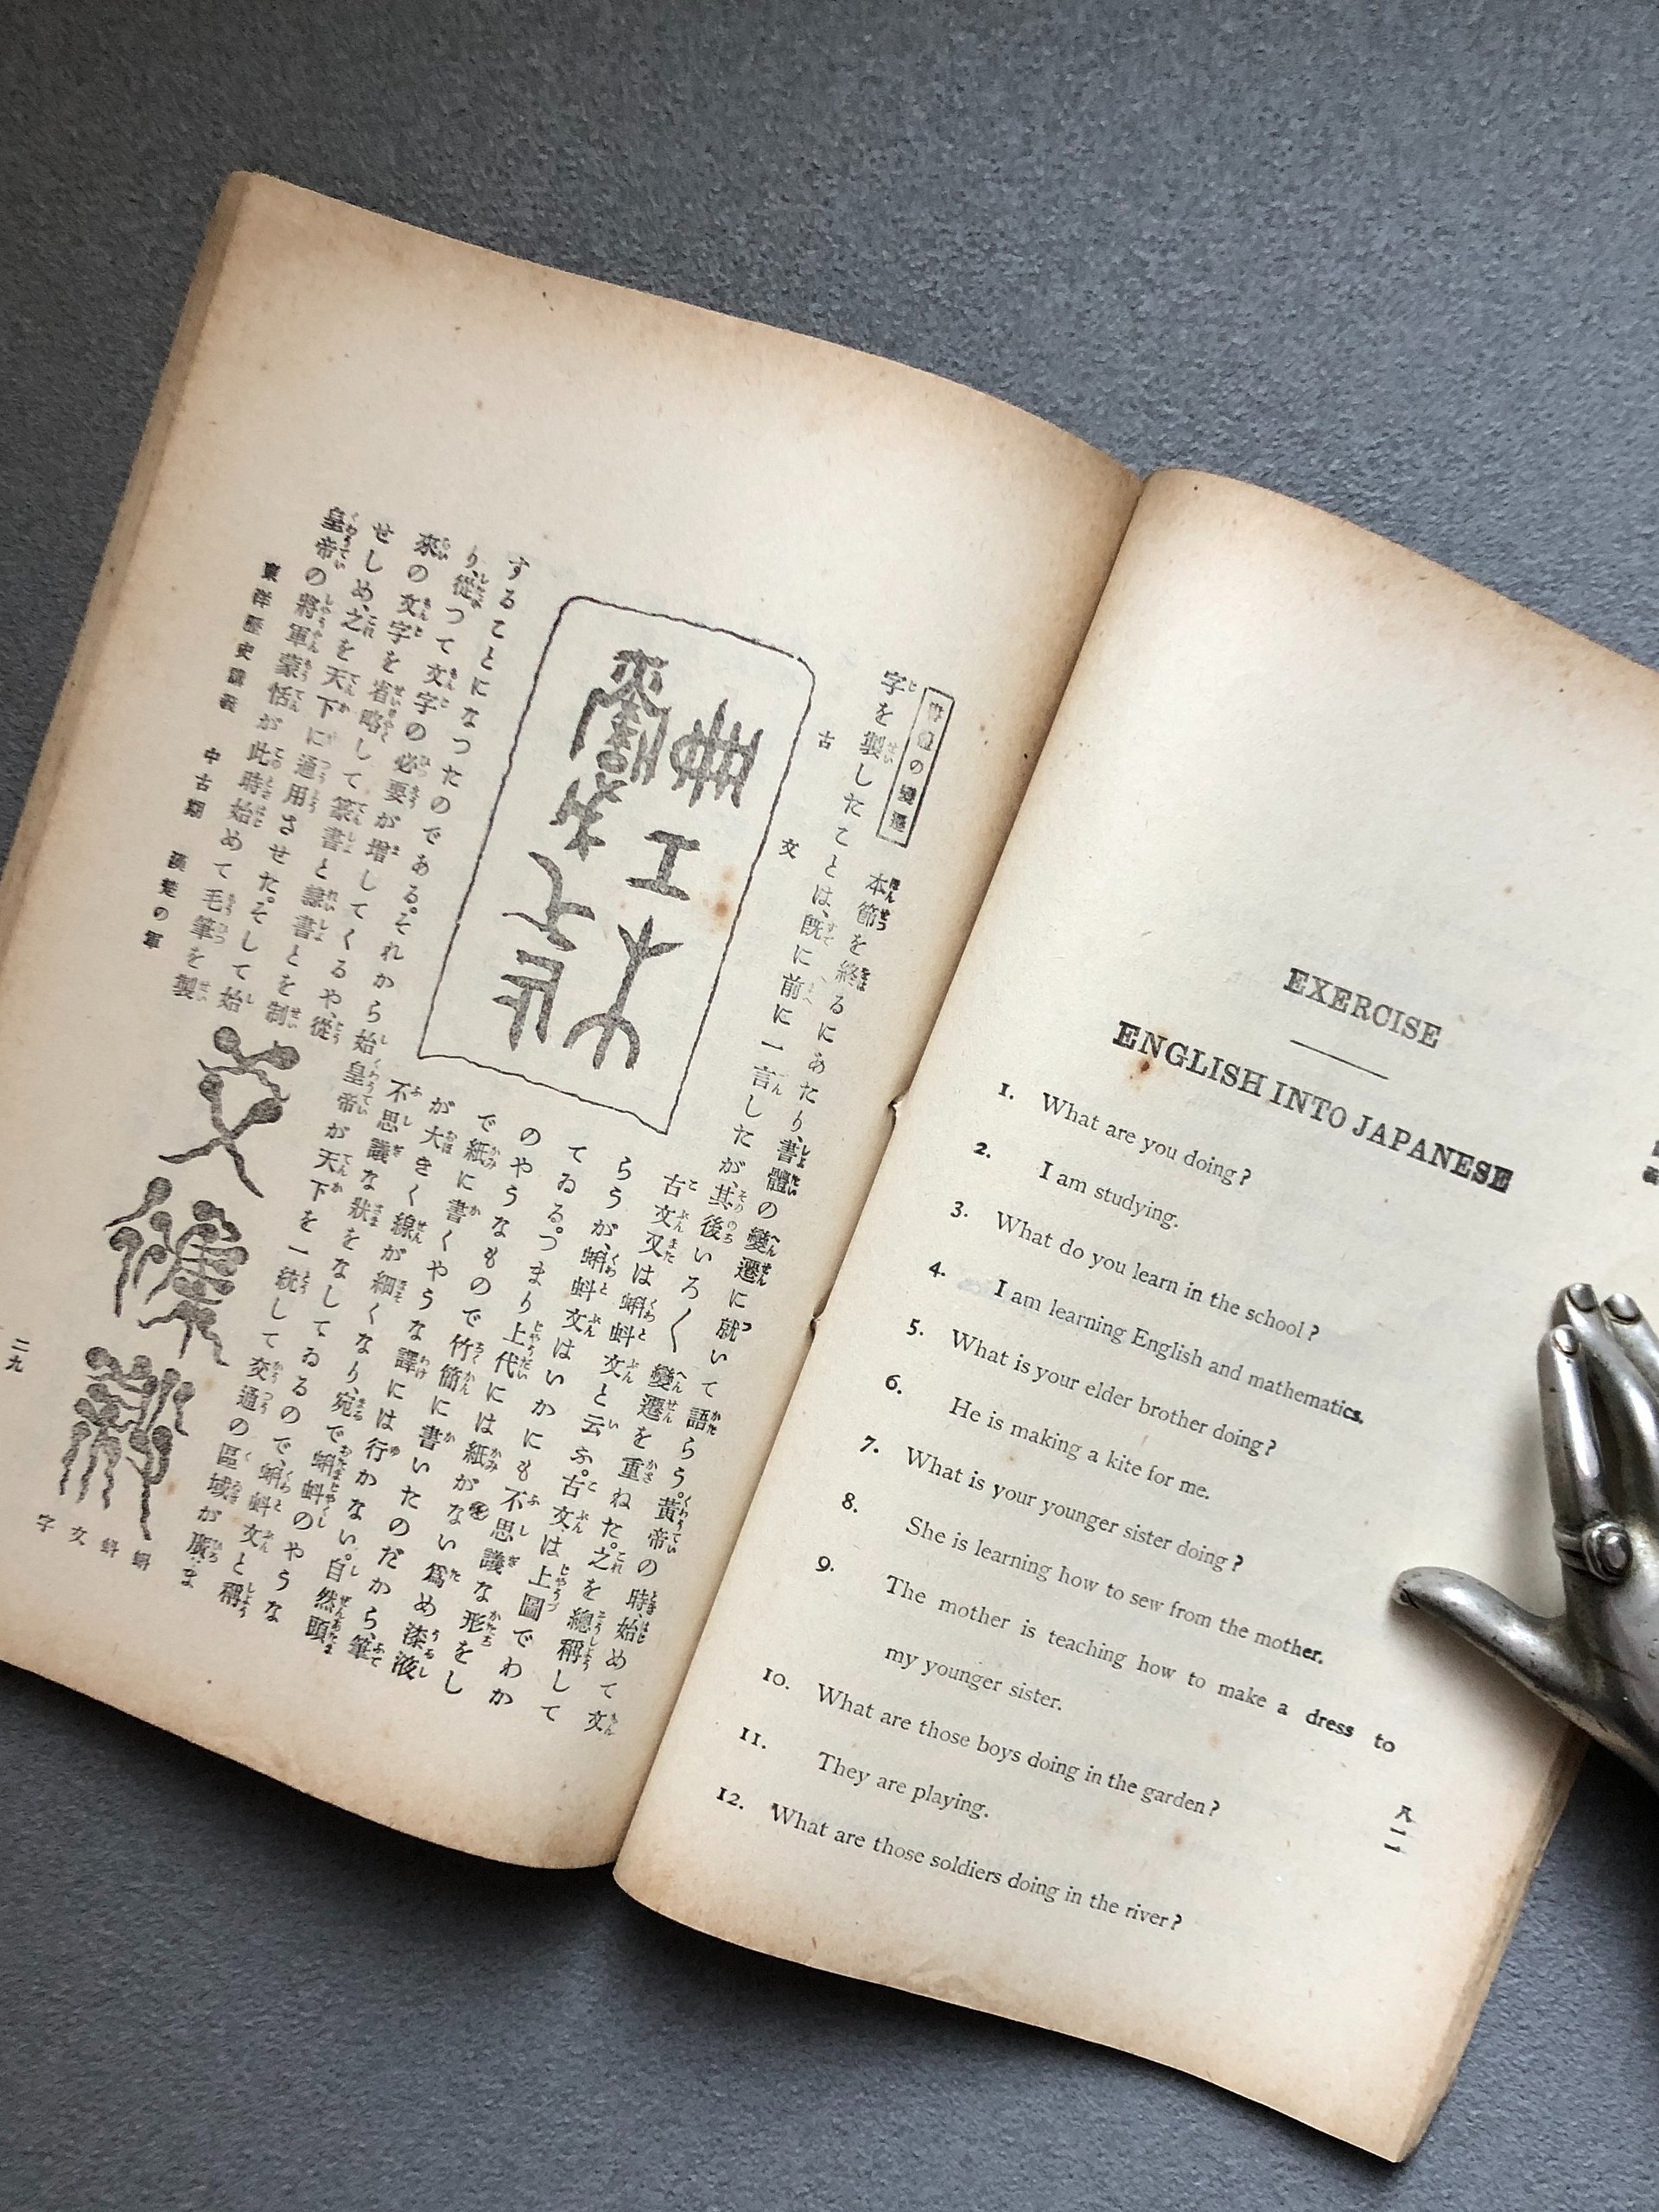 書體の變遷
本節を終るにあたり、書體の變遷に就いて語らう。黄帝の時、始めて文
字を製したことは、既に前に一言したが、其後いろ〱變遷を重ねた。之を總稱して
古文
古文又は蝌蚪文と云ふ。古文は上圖でわか
らうが、蝌蚪文はいかにも不思議な形をし
てゐる。つまり上代には紙がない爲め漆液
のやうなもので竹簡に書いたのだから、筆
で紙に書くやうな譯には行かない。自然頭
が大きく線が細くなり、宛で蝌蚪のやうな
不思議な狀をなしてゐるので、蝌蚪文と稱
することになつたのである。それから始皇帝が天下を一統して交通の區域が廣ま
り、從つて文字の必要が増してくるや、從
來の文字を省略して篆書と隷書とを制
せしめ、之を天下に通用させた。そして始
皇帝の將軍蒙恬が此時始めて毛筆を製
蝌蚪文字
東洋歷史講義 中古期 漢楚の軍
二九
EXERCISE
ENGLISH INTO JAPANESE
1. What are you doing?
2. I am studying.
3. What do you learn in the school?
4. I am learning English and mathematics.
5. What is your elder brother doing?
6. He is making a kite for me.
7. What is your younger sister doing?
8. She is learning how to sew from the mother.
9. The mother is teaching how to make a dress to
my younger sister.
10. What are those boys doing in the garden?
11. They are playing.
12. What are those soldiers doing in the river?
八二